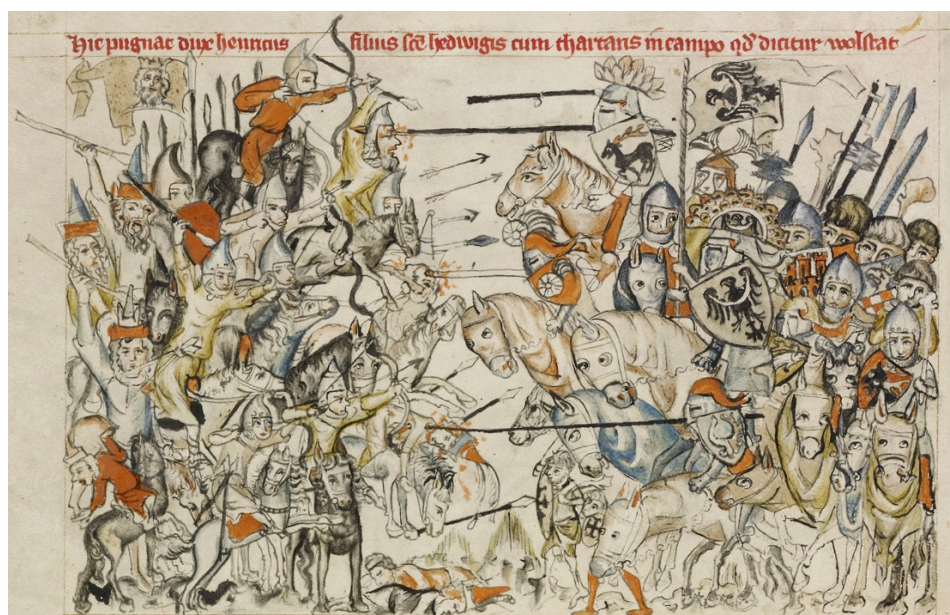 Hic pugnat dux henricus filius sc̄e hedwigis cum thartaris in campo qd̄ dicitur wolstat